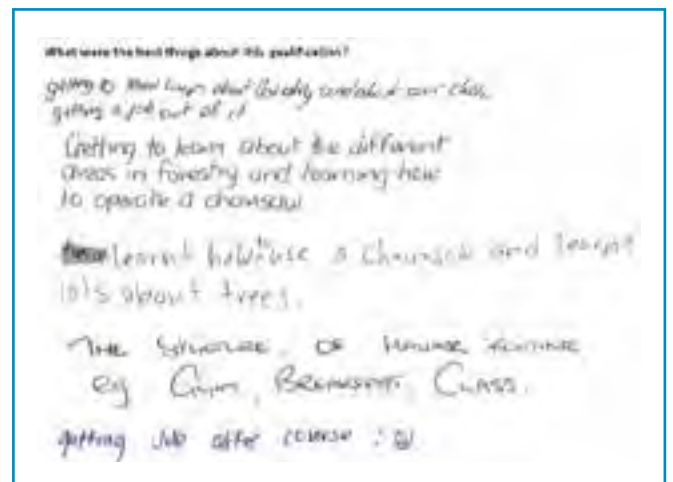 What were the best things about this qualification?
getting to
getting a job out of it
Getting to learn about the different
areas in forestry and learning how
to operate a chainsaw
learnt how to use a chainsaw and learnt
lots about trees.
THE STRUCTURE OF
eg Gym, BREAKFAST, CLASS.
getting Job after course :